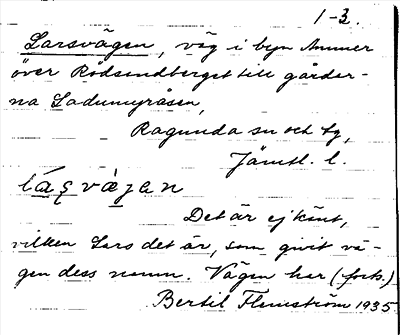 1-3.
Larsvägen, väg i byn Ammer
över Rödsandberget till gårdar-
na Ladumyråsen,
Ragunda sn och tg,
Jämtl. l.
lás̨vàgan
Det är ej känt,
vilken Lars det är, som givit vä-
gen dess namn. Vägen har (forts.)
Bertil Flemström 1935